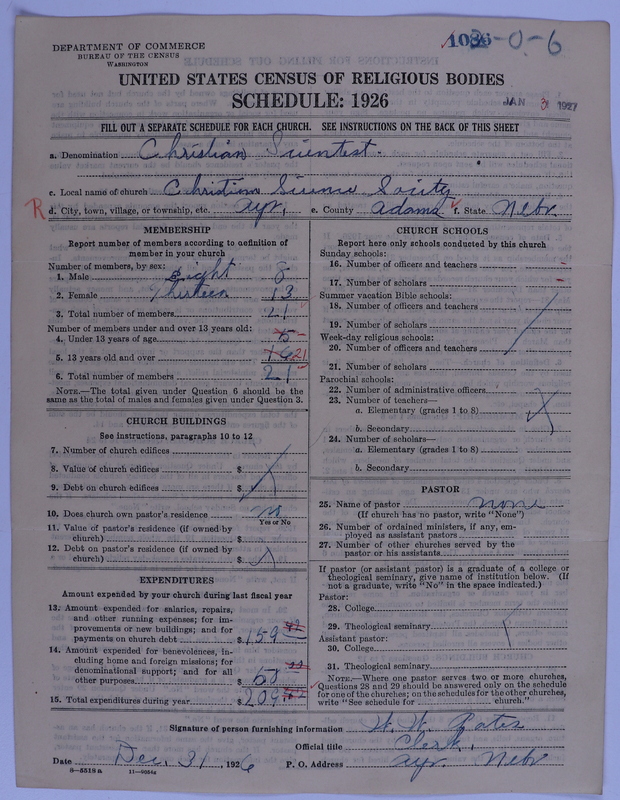 DEPARTMENT OF COMMERCE
BUREAU OF THE CENSUS
WASHINGTON
-0-6
UNITED STATES CENSUS OF RELIGIOUS BODIES
SCHEDULE: 1926
JAN 3 1927
FILL OUT A SEPARATE SCHEDULE FOR EACH CHURCH. SEE INSTRUCTIONS ON THE BACK OF THIS SHEET
a. Denomination Christian Scientest.
c. Local name of church Christian Science Society
R d. City, town, village, or township, etc. Ayr, e. County Adams f. State Nebr.
MEMBERSHIP
Report number of members according to definition of
member in your church
Number of members, by sex:
1. Male Eight 8
2. Female Thirteen 13
3. Total number of members 21
Number of members under and over 13 years old:
4. Under 13 years of age 5 -
5. 13 years old and over 16 21
6. Total number of members 21
NOTE.—The total given under Question 6 should be
same as the total of males and females given under Question 3.
CHURCH BUILDINGS
See instructions, paragraphs 10 to 12
7. Number of church edifices
8. Value of church edifices $
9. Debt on church edifices $
10. Does church own pastor's residence no
Yes or No
11. Value of pastor's residence (if owned by
church) $
12. Debt on pastor's residence (if owned by
church) $
EXPENDITURES
Amount expended by your church during last fiscal year
13. Amount expended for salaries, repairs,
and other running expenses; for im-
provements or new buildings; and for
payments on church debt $ 159
14. Amount expended for benevolences, in-
cluding home and foreign missions; for
denominational support; and for all
other purposes $
15. Total expenditures during year $ 209
CHURCH SCHOOLS
Report here only schools conducted by this church
Sunday schools:
16. Number of officers and teachers -
17. Number of scholars -
Summer vacation Bible schools:
18. Number of officers and teachers
19. Number of scholars
Week-day religious schools:
20. Number of officers and teachers
21. Number of scholars
Parochial schools:
22. Number of administrative officers
23. Number of teachers—
a. Elementary (grades 1 to 8)
b. Secondary
24. Number of scholars—
a. Elementary (grades 1 to 8)
b. Secondary
PASTOR
25. Name of pastor none
(If church has no pastor, write "None")
26. Number of ordained ministers, if any, em-
ployed as assistant pastors
27. Number of other churches served by the
pastor or his assistants
If pastor (or assistant pastor) is a graduate of a college or
theological seminary, give name of institution below. (If
not a graduate, write "No" in the space indicated.)
Pastor:
28. College
29. Theological seminary
Assistant pastor:
30. College
31. Theological seminary
NOTE.—Where one pastor serves two or more churches,
Questions 28 and 29 should be answered only on the schedule
for one of the churches; on the schedules for the other churches,
write "See schedule for church."
Signature of person furnishing information W. W.
Official title Clerk,
Date Dec. 31, 1926 P. O. Address Ayr. Nebr
8-5518a 11-9052d